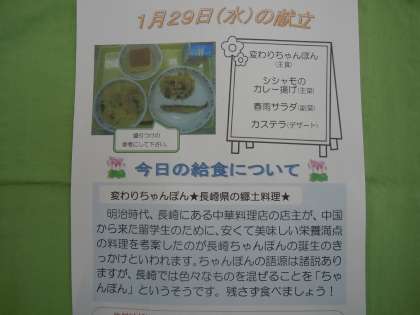 1月29日(水)の献立
変わりちゃんぽん
(主食)
シシャモの
カレー揚げ(主菜)
春雨サラダ(副菜)
カステラ(デザート)
盛りつけの
参考にして下さい。
今日の給食について
変わりちゃんぽん★長崎県の郷土料理★
明治時代、長崎にある中華料理店の店主が、中国
から来た留学生のために、安くて美味しい栄養満点
の料理を考案したのが長崎ちゃんぽんの誕生のき
っかけといわれます。ちゃんぽんの語源は諸説あり
ますが、長崎では色々なものを混ぜることを「ちゃ
んぽん」というそうです。残さず食べましょう!